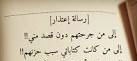 [رسالة إعتذار]
إلى من جرحتهم دون قصد مني!!
إلى من كانت كتاباتي سبب حزنهم!!